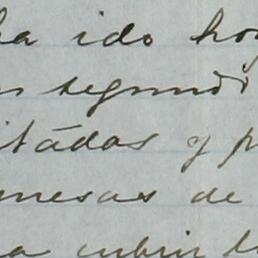 ha ido ho
segundo
itádas y p
mesas de
a cubrir l